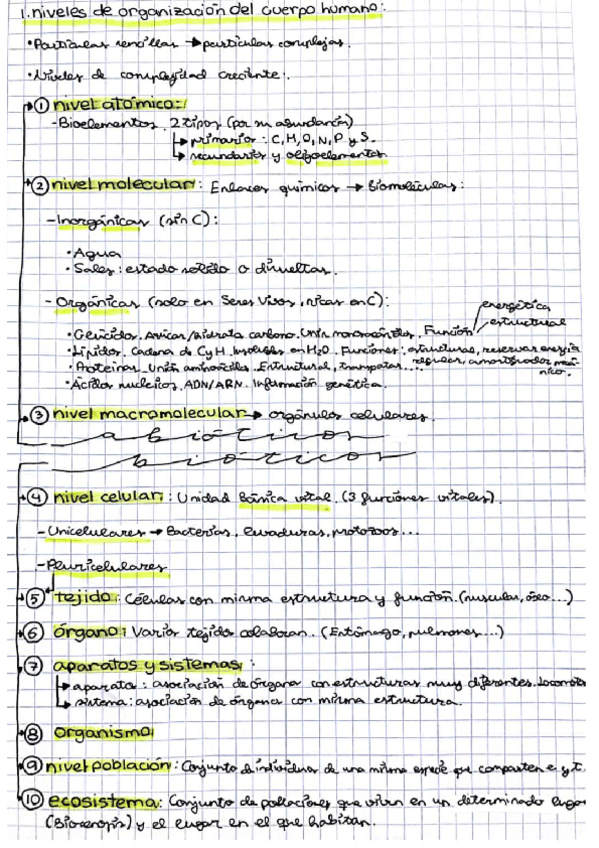 1. niveles de organización del cuerpo humano:
• Partículas sencillas → partículas complejas.
• Niveles de complejidad creciente:
① nivel atómico:
- Bioelementos. 2 tipos (por su abundancia)
→ primarios: C, H, O, N, P y S.
→ secundarios y oligoelementos.
② nivel molecular: Enlaces químicos → Biomoléculas:
- Inorgánicas (sin C):
• Agua
• Sales: estado solido o disueltas.
- Orgánicas (solo en Seres Vivos, ricas en C):
energética
• Glúcidos. Azúcar/hidrato carbono. Unión monosacáridos. Función estructural
• Lípidos. Cadena de C y H. Insolubles en H2O. Funciones: estructural, reserva energía
• Proteínas. Unión aminoácidos. Estructural, transportar... regular, amortiguador mecá-
nico.
• Ácidos nucleicos. ADN/ARN. Información genética.
③ nivel macromolecular → orgánulos celulares.
abióticos
bióticos
④ nivel celular: Unidad Básica vital. (3 funciones vitales).
- Unicelulares → Bacterias, levaduras, protozoos...
- Pluricelulares
⑤ tejido: Células con misma estructura y función. (muscular, óseo...)
⑥ órgano: Varios tejidos colaboran. (Estómago, pulmones...)
⑦ aparatos y sistemas:
→ aparato: asociación de órganos con estructuras muy diferentes. Locomotor
→ sistema: asociación de órganos con misma estructura.
⑧ organismo
⑨ nivel población: Conjunto de individuos de una misma especie que comparten e y t.
⑩ ecosistema: Conjunto de poblaciones que viven en un determinado lugar
(Biocenosis) y el lugar en el que habitan.